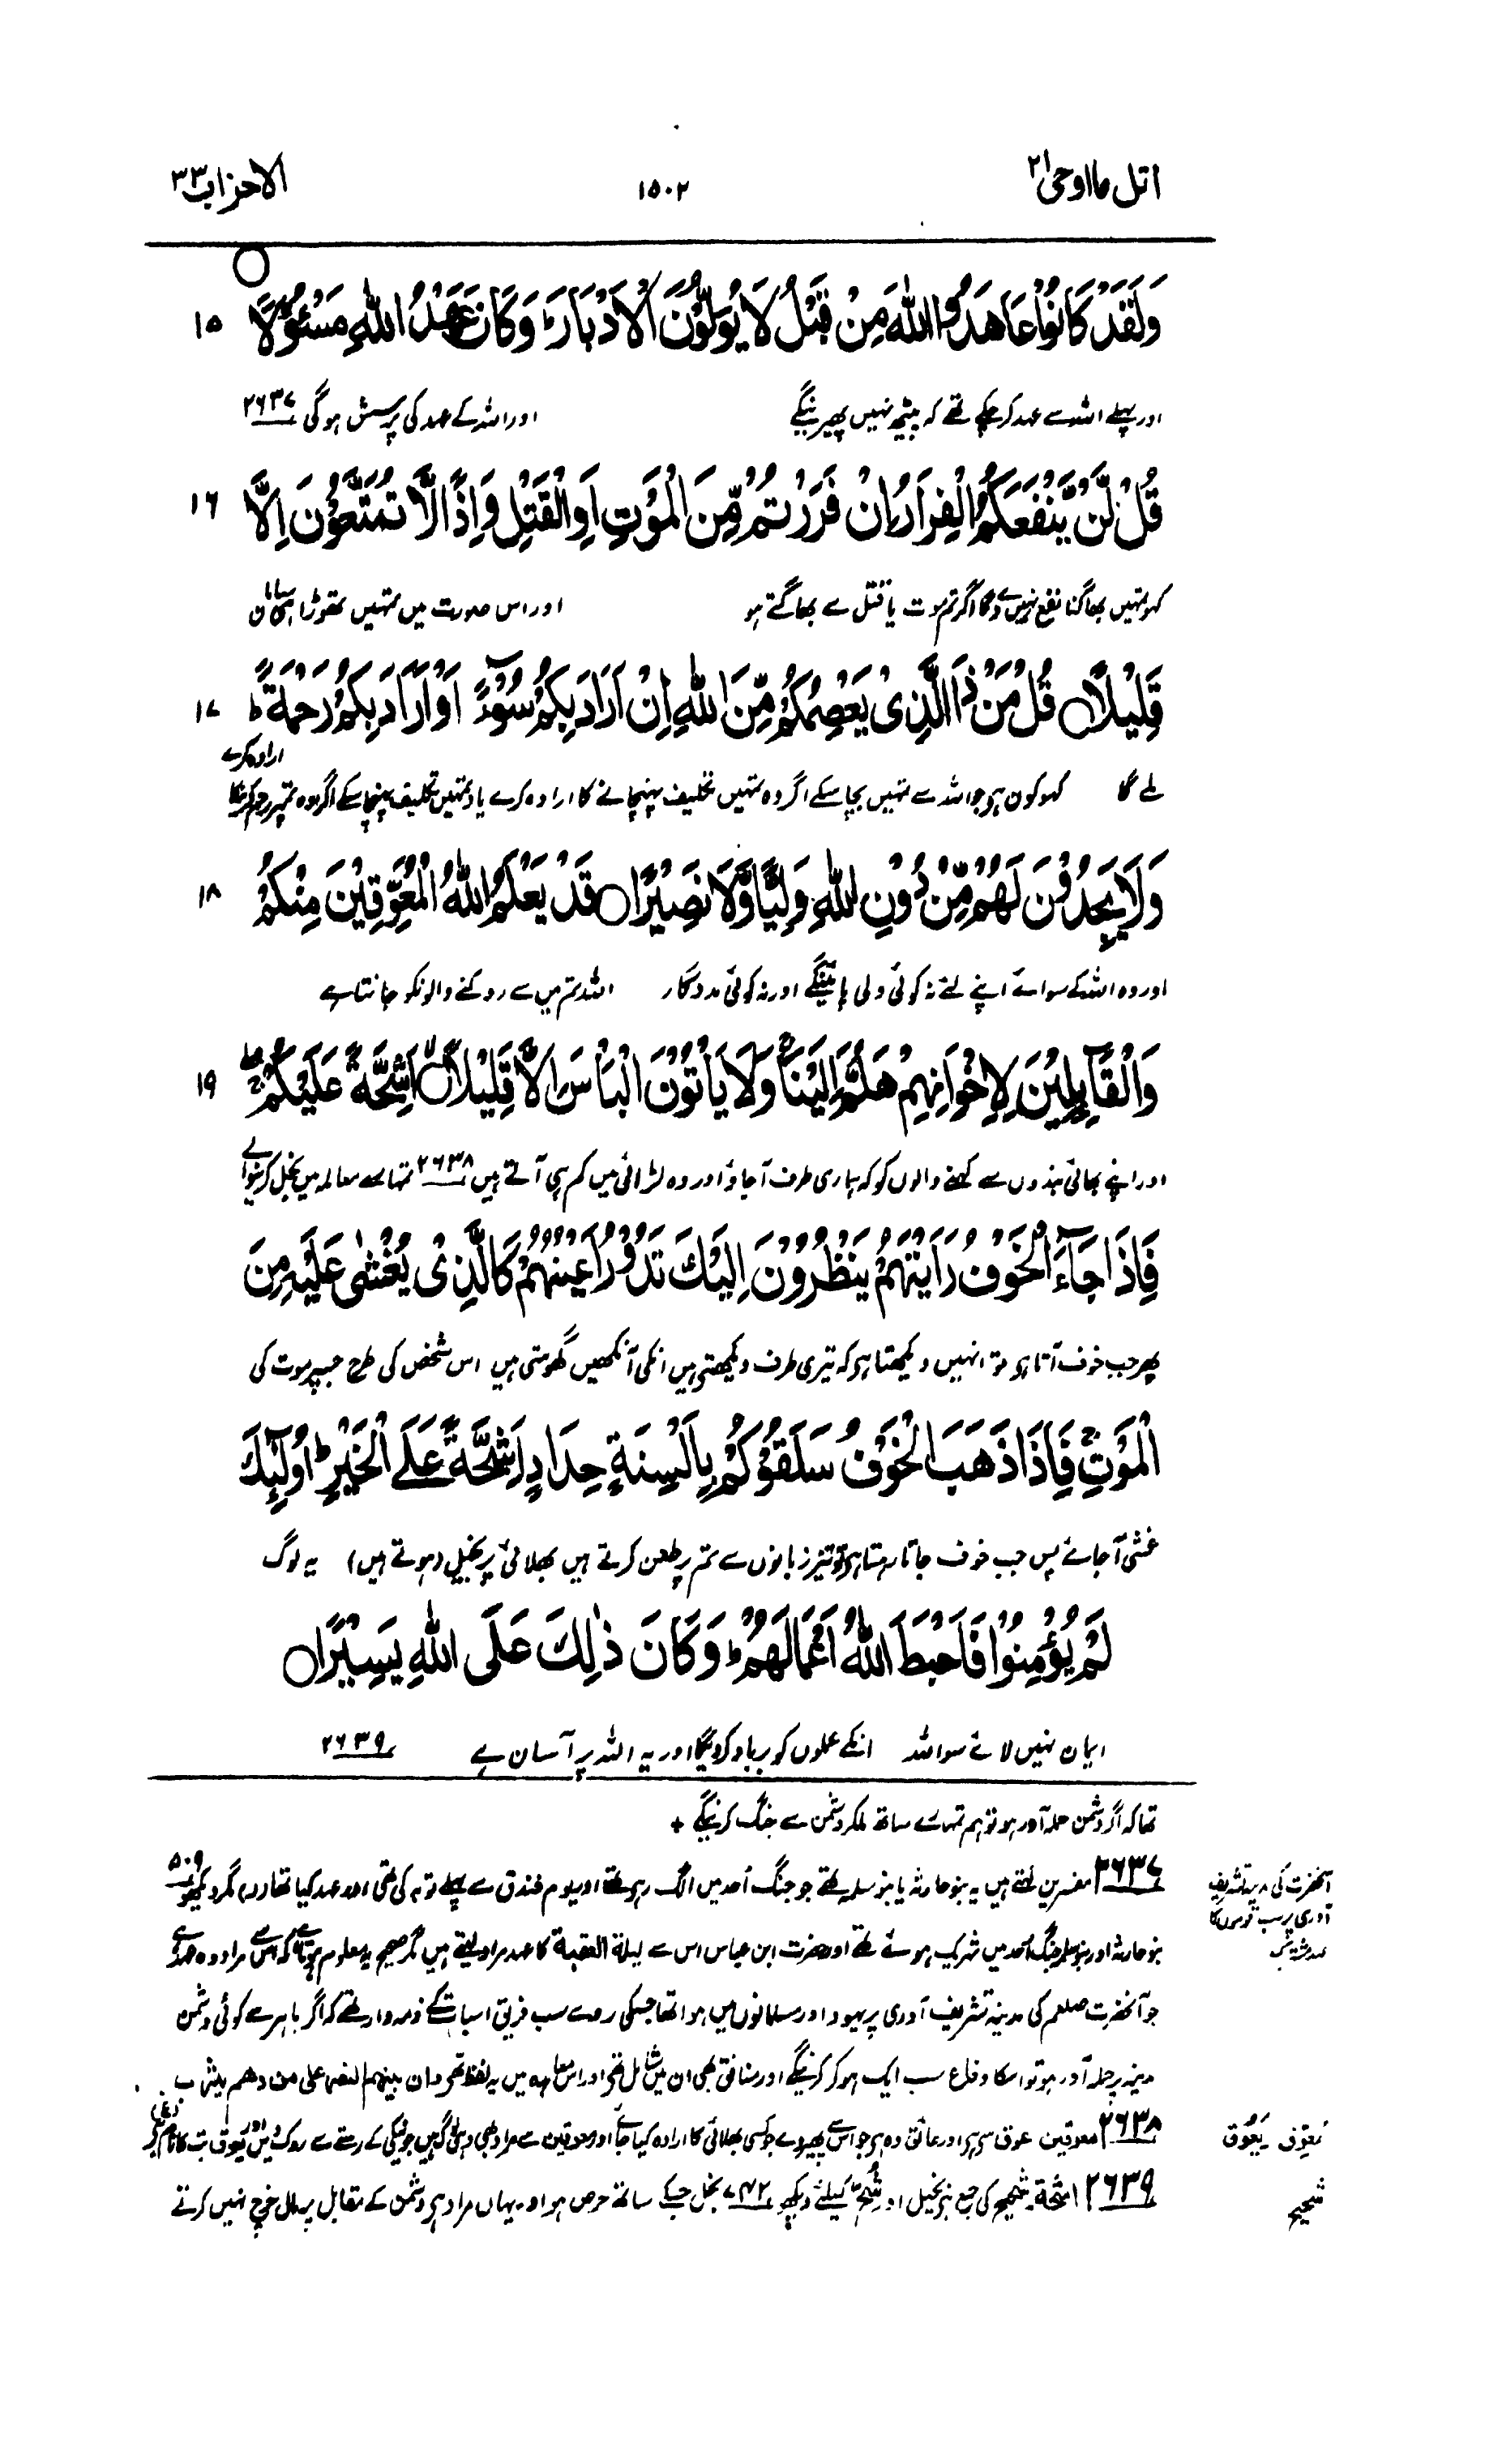 اتل ما اوحی ۲۱
۱۵۰۲
الاحزاب ۳۳
وَلَقَدْ كَانُوْا عَاهَدُوا اللّٰهَ مِنْ قَبْلُ لَا يُوَلُّوْنَ الْاَدْبَارَ ؕ وَكَانَ عَهْدُ اللّٰهِ مَسْـُٔوْلًا ۱۵
اور پہلے اللہ سے عہد کرچکے تھے کہ پیٹھ نہیں پھیرینگے اور اللہ کے عہد کی پرسش ہوگی ۲۶۳۷
قُلْ لَّنْ يَّنْفَعَكُمُ الْفِرَارُ اِنْ فَرَرْتُمْ مِّنَ الْمَوْتِ اَوِ الْقَتْلِ وَاِذًا لَّا تُمَتَّعُوْنَ اِلَّا ۱۶
کہو تمہیں بھاگنا نفع نہیں دے گا اگر تم موت یا قتل سے بھاگتے ہو اور اس صورت میں تمہیں تھوڑا ہی سامان
قَلِيْلًا ○ قُلْ مَنْ ذَا الَّذِيْ يَعْصِمُكُمْ مِّنَ اللّٰهِ اِنْ اَرَادَ بِكُمْ سُوْٓءًا اَوْ اَرَادَ بِكُمْ رَحْمَةً ؕ ۱۷
ملے گا کہو کون ہے جو اللہ سے تمہیں بچا سکے اگر وہ تمہیں تکلیف پہنچانے کا ارادہ کرے یا تمہیں تکلیف پہنچا سکے اگر وہ تمپر رحم کرنیکا ارادہ کرے
وَلَا يَجِدُوْنَ لَهُمْ مِّنْ دُوْنِ اللّٰهِ وَلِيًّا وَّلَا نَصِيْرًا ○ قَدْ يَعْلَمُ اللّٰهُ الْمُعَوِّقِيْنَ مِنْكُمْ ۱۸
اور وہ اللہ کے سوائے اپنے لئے نہ کوئی ولی پائینگے اور نہ کوئی مددگار اللہ تم میں سے روکنے والونکو جانتا ہے
وَالْقَآئِلِيْنَ لِاِخْوَانِهِمْ هَلُمَّ اِلَيْنَا ۚ وَلَا يَاْتُوْنَ الْبَاْسَ اِلَّا قَلِيْلًا ○ اَشِحَّةً عَلَيْكُمْ ۖ ۱۹
اور اپنے بھائی بندوں سے کہنے والوں کو کہ ہماری طرف آجاؤ اور وہ لڑائی میں کم ہی آتے ہیں ۲۶۳۸ تمہارے معاملہ میں بخل کرنیوالے
فَاِذَا جَآءَ الْخَوْفُ رَاَيْتَهُمْ يَنْظُرُوْنَ اِلَيْكَ تَدُوْرُ اَعْيُنُهُمْ كَالَّذِيْ يُغْشٰى عَلَيْهِ مِنَ
پھر جب خوف آتا ہو تو انہیں دیکھتا ہو کہ تیری طرف دیکھتے ہیں انکی آنکھیں گھومتی ہیں اس شخص کی طرح جسپر موت کی
الْمَوْتِ ۚ فَاِذَا ذَهَبَ الْخَوْفُ سَلَقُوْكُمْ بِاَلْسِنَةٍ حِدَادٍ اَشِحَّةً عَلَى الْخَيْرِ ؕ اُولٰٓئِكَ
غشی آجائے پس جب خوف جاتا رہتا ہو تو تیز زبانوں سے تم پر طعن کرتے ہیں بھلائی پر بخیل (ہوتے ہیں) یہ لوگ
لَمْ يُؤْمِنُوْا فَاَحْبَطَ اللّٰهُ اَعْمَالَهُمْ ؕ وَكَانَ ذٰلِكَ عَلَى اللّٰهِ يَسِيْرًا ○
ایمان نہیں لائے سو اللہ انکے عملوں کو برباد کردیگا اور یہ اللہ پر آسان ہے ۲۶۳۹
تھا کہ اگر دشمن حملہ آور ہو تو ہم تمہارے ساتھ ملکر دشمن سے جنگ کرینگے +
۲۶۳۷ مفسرین لکھتے ہیں یہ بنو حارثہ یا بنو سلمہ تھے جو جنگ اُحد میں الگ رہے تھے اور یوم خندق سے پہلے توبہ کی تھی اور عہد کیا تھا (ر) مگر دیکھو ۵۰۹
بنو حارثہ اور بنو سلمہ جنگ اُحد میں شریک ہوئے تھے اور حضرت ابن عباس اس سے لیلۃ العقبۃ کا عہد مراد لیتے ہیں مگر صحیح یہ معلوم ہوتا ہے کہ اس سے مراد وہ عہد ہے
جو آنحضرت صلعم کی مدینہ تشریف آوری پر یہود اور مسلمانوں میں ہوا تھا جسکی رو سے سب فریق اسبات کے ذمہ وار تھے کہ اگر باہر سے کوئی دشمن
مدینہ پر حملہ آور ہو تو اسکا دفاع سب ایک ہو کر کرینگے اور منافق بھی ان میں شامل تھے اور اس معاہدہ میں یہ لفظ تھے وان بینہم النصر علی من دھم یثرب
۲۶۳۸ معوقین عوق سے ہے اور عائق وہ ہے جو اس سے پھیر دے جو کسی بھلائی کا ارادہ کیا جائے اور معوقین سے مراد بھی وہی لوگ ہیں جو نیکی کے رستے سے روکتے ہیں اور یعوق بت کا نام ہے (غ)
۲۶۳۹ اشحۃ شحیح کی جمع ہے بخیل اور شُحّ کیلئے دیکھو ۷۴۲ بخل جسکے ساتھ حرص ہو اور یہاں مراد ہے دشمن کے مقابل پر مال خرچ نہیں کرتے
آنحضرت کی مدینہ تشریف
آوری پر سب قوموں کا
مُعوِّق یَعُوق
شحیح